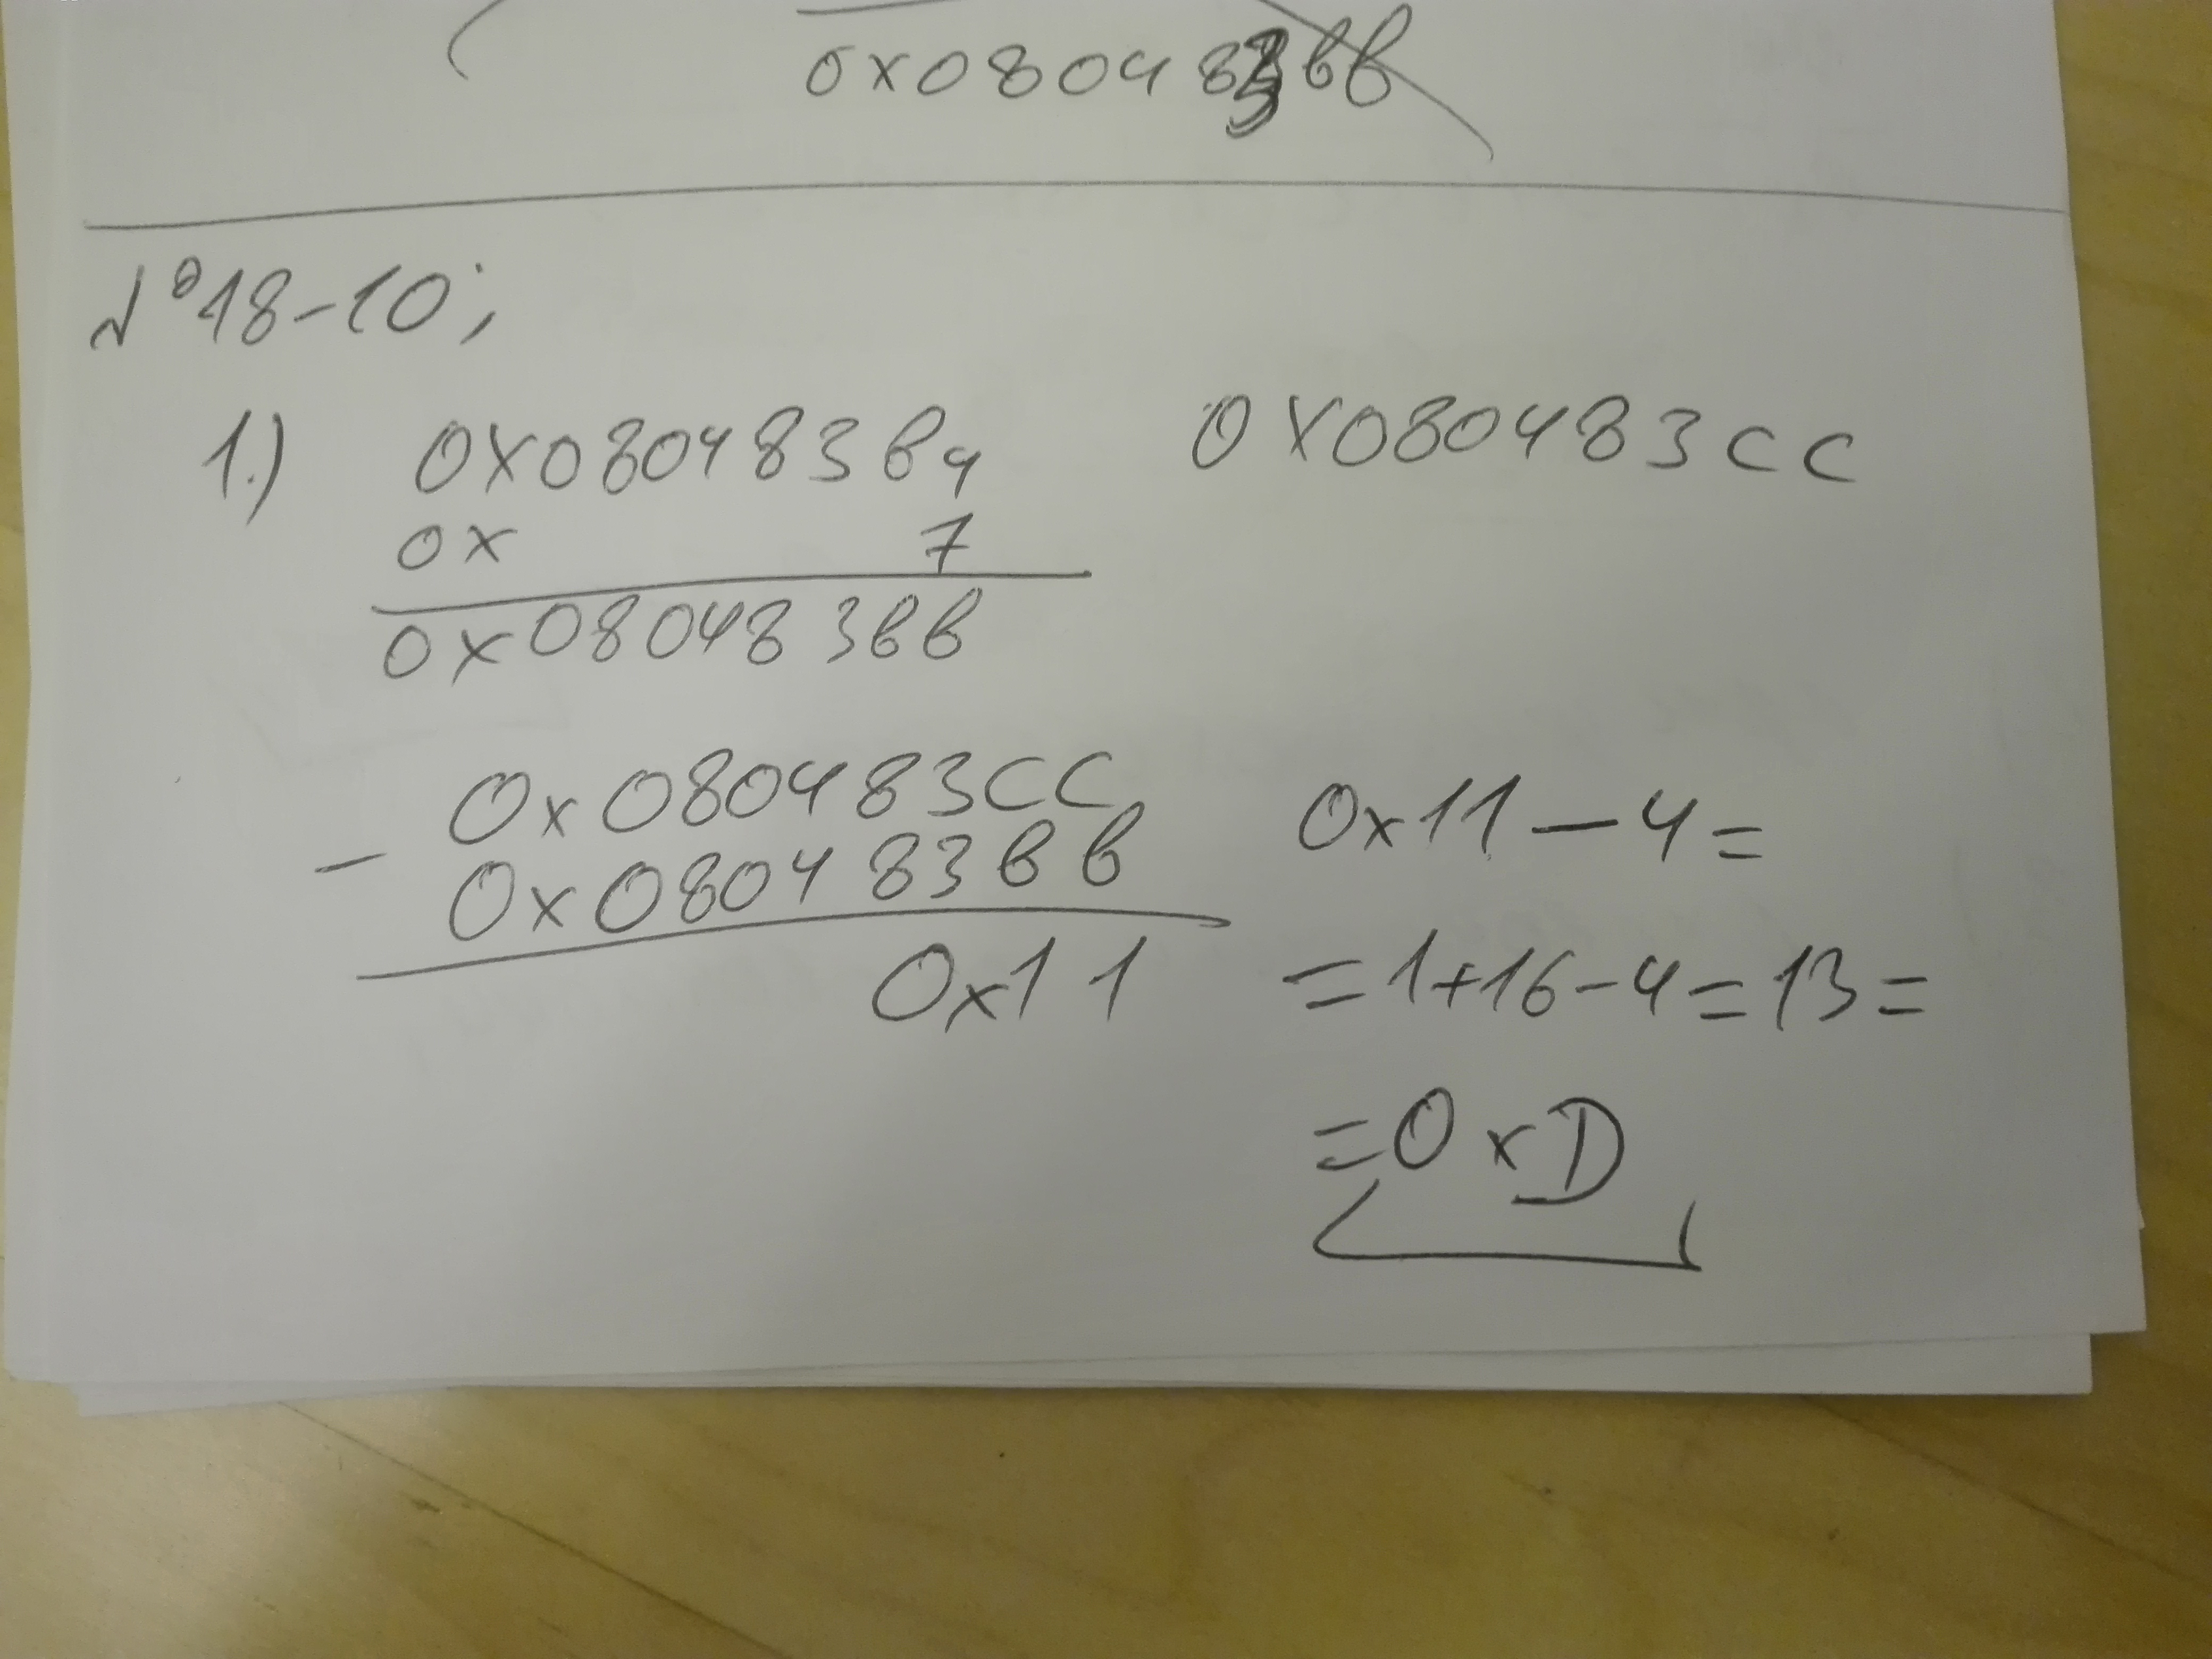 0x080483вв
№18-10;
1.) 0x080483в4 0x080483CC
0x 7
0x080483вв
0x080483CC
- 0x080483вв
0x11
0x11-4=
=1+16-4=13=
=0xD